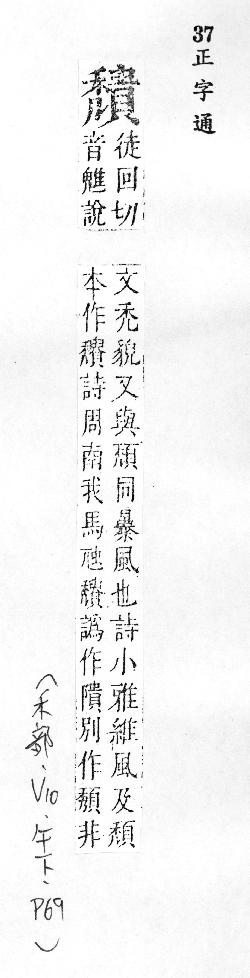 37正字通
穨
徒回切
音魋說
文禿貌又與頹同暴風也詩小雅維風及頹
本作穨詩周南我馬虺穨譌作隤別作頹非
(禾部、V10、午下、P69)